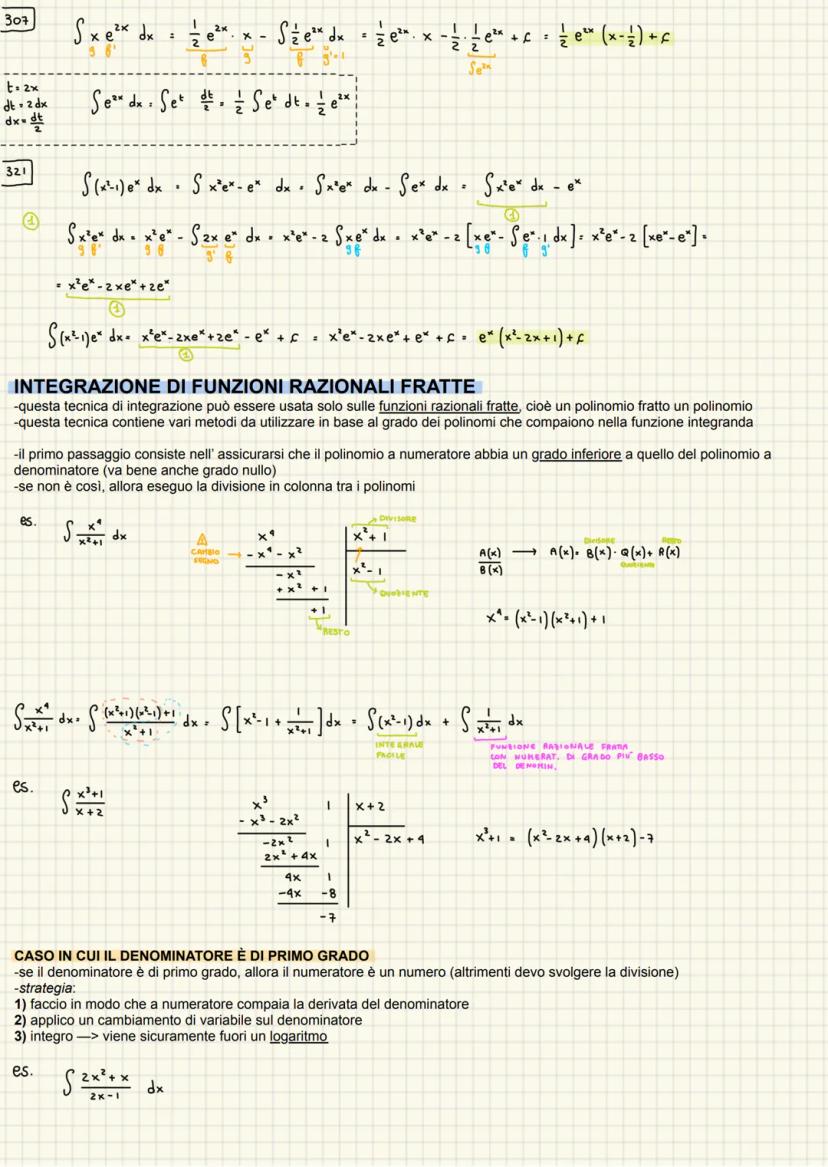 307
∫ x e^2x dx = 1/2 e^2x · x - ∫ 1/2 e^2x dx = 1/2 e^2x · x - 1/2 · 1/2 e^2x + c = 1/2 e^2x (x - 1/2) + c
g f' f g f g'=1 ∫e^2x
t = 2x
dt = 2 dx
dx = dt/2
∫ e^2x dx = ∫ e^t dt/2 = 1/2 ∫ e^t dt = 1/2 e^2x
321
∫ (x²-1) e^x dx = ∫ x²e^x - e^x dx = ∫ x²e^x dx - ∫ e^x dx = ∫ x²e^x dx - e^x
1
1
∫ x²e^x dx = x²e^x - ∫ 2x e^x dx = x²e^x - 2 ∫ xe^x dx = x²e^x - 2 [xe^x - ∫ e^x · 1 dx] = x²e^x - 2 [xe^x - e^x] =
g f' g f g' f g f g f f g'
= x²e^x - 2xe^x + 2e^x
1
∫ (x²-1)e^x dx = x²e^x - 2xe^x + 2e^x - e^x + c = x²e^x - 2xe^x + e^x + c = e^x (x² - 2x + 1) + c
1
INTEGRAZIONE DI FUNZIONI RAZIONALI FRATTE
-questa tecnica di integrazione può essere usata solo sulle funzioni razionali fratte, cioè un polinomio fratto un polinomio
-questa tecnica contiene vari metodi da utilizzare in base al grado dei polinomi che compaiono nella funzione integranda
-il primo passaggio consiste nell' assicurarsi che il polinomio a numeratore abbia un grado inferiore a quello del polinomio a
denominatore (va bene anche grado nullo)
-se non è così, allora eseguo la divisione in colonna tra i polinomi
es. ∫ x⁴/(x²+1) dx
! CAMBIO SEGNO →
x⁴
- x⁴ - x²
- x²
+ x² + 1
+ 1
RESTO
DIVISORE
x² + 1
x² - 1
QUOZIENTE
A(x)/B(x) → A(x) = B(x) · Q(x) + R(x)
DIVISORE QUOZIENTE RESTO
x⁴ = (x²-1)(x²+1) + 1
∫ x⁴/(x²+1) dx = ∫ ((x²+1)(x²-1)+1)/(x²+1) dx = ∫ [x² - 1 + 1/(x²+1)] dx = ∫ (x²-1) dx + ∫ 1/(x²+1) dx
INTEGRALE FACILE
FUNZIONE RAZIONALE FRATTA
CON NUMERAT. DI GRADO PIÙ BASSO
DEL DENOMIN.
es. ∫ (x³+1)/(x+2)
x³ 1
- x³ - 2x²
-2x² 1
2x² + 4x
4x 1
-4x -8
-7
x + 2
x² - 2x + 4
x³+1 = (x² - 2x + 4)(x+2) - 7
CASO IN CUI IL DENOMINATORE È DI PRIMO GRADO
-se il denominatore è di primo grado, allora il numeratore è un numero (altrimenti devo svolgere la divisione)
-strategia:
1) faccio in modo che a numeratore compaia la derivata del denominatore
2) applico un cambiamento di variabile sul denominatore
3) integro —> viene sicuramente fuori un logaritmo
es. ∫ (2x² + x)/(2x - 1) dx